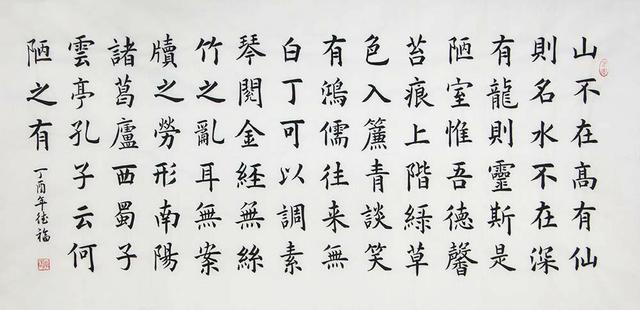 山不在髙有仙
則名水不在深
有龍則靈斯是
陋室惟吾德馨
苔痕上階緑草
色入簾青談笑
有鴻儒往来無
白丁可以調素
琴閱金経無絲
竹之亂耳無案
牘之勞形南陽
諸葛廬西蜀子
雲亭孔子云何
陋之有
丁酉年德福